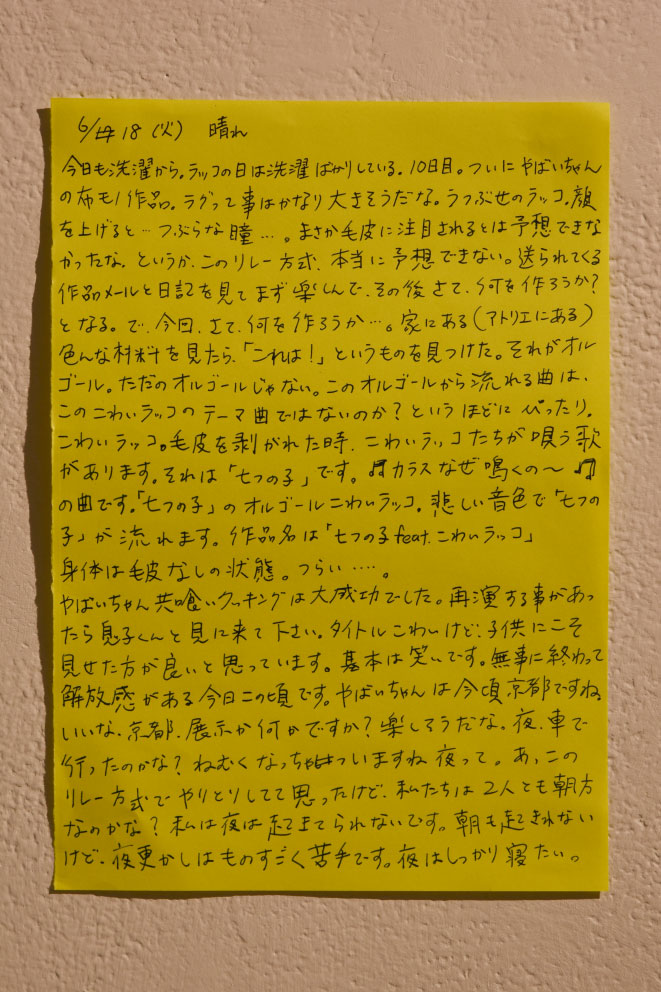 6/18 (火) 晴れ
今日も洗濯から。ラッコの日は洗濯ばかりしている。10日目。ついにやばいちゃん
の布モノ作品。ラグって事はかなり大きそうだな。うつぶせのラッコ。顔
を上げると…つぶらな瞳…。まさか毛皮に注目されるとは予想できな
かったな。というか、このリレー方式、本当に予想できない。送られてくる
作品メールと日記を見てまず楽しんで、その後さて、何を作ろうか?
となる。で、今日、さて、何を作ろうか…。家にある(アトリエにある)
色んな材料を見たら、「これは!」というものを見つけた。それがオル
ゴール。ただのオルゴールじゃない。このオルゴールから流れる曲は、
このこわいラッコのテーマ曲ではないのか?というほどにぴったり。
こわいラッコ。毛皮を剥がれた時、こわいラッコたちが唄う歌
があります。それは「七つの子」です。♫カラスなぜ鳴くの〜♫
の曲です。「七つの子」のオルゴールこわいラッコ。悲しい音色で「七つの
子」が流れます。作品名は「七つの子feat.こわいラッコ」
身体は毛皮なしの状態。つらい….。
やばいちゃん共喰いクッキングは大成功でした。再演する事があっ
たら息子くんと見に来て下さい。タイトルこわいけど、子供にこそ
見せた方が良いと思っています。基本は笑いです。無事に終わって
解放感がある今日この頃です。やばいちゃんは今頃京都ですね。
いいな、京都、展示か何かですか?楽しそうだな。夜、車で
行ったのかな?ねむくなっちゃいますね夜って。あ、この
リレー方式でやりとりしてて思ったけど、私たちは2人とも朝方
なのかな?私は夜は起きてられないです。朝も起きれない
けど、夜更かしはものすごく苦手です。夜はしっかり寝たい。